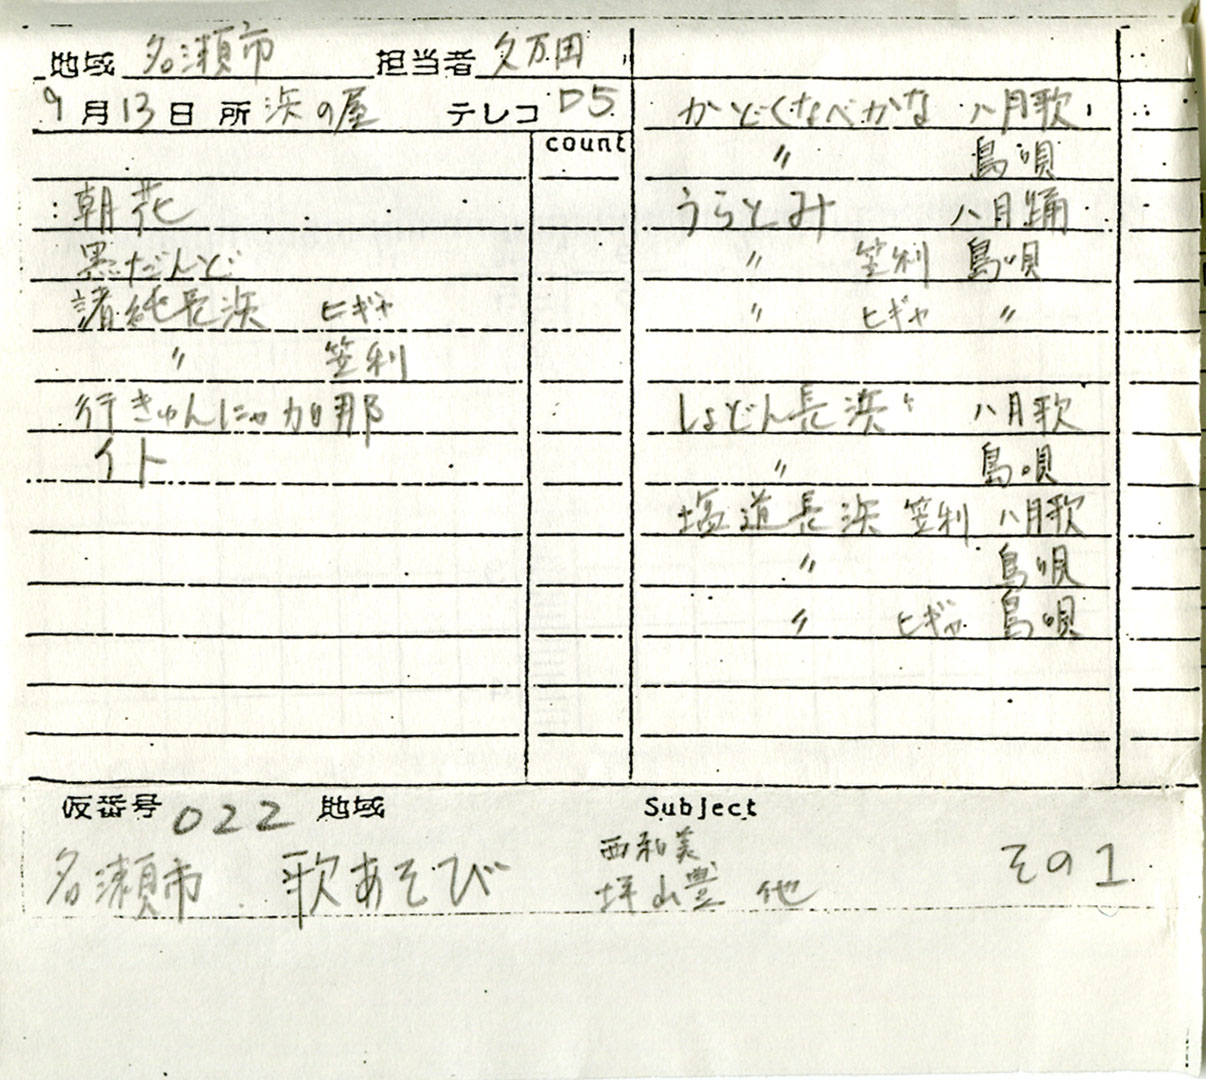 地域 名瀬市 担当者 久万田
9月13日 所 浜の屋 テレコ D5
count
朝花
黒だんど
諸鈍長浜 ヒギャ
〃 笠利
行きゅんにゃ加那
イト
かどくなべかな 八月歌
〃 島唄
うらとみ 八月踊
〃 笠利 島唄
〃 ヒギャ 〃
しょどん長浜 八月歌
〃 島唄
塩道長浜 笠利 八月歌
〃 島唄
〃 ヒギャ 島唄
仮番号 022 地域 Subject
名瀬市 歌あそび
西和美
坪山豊 他
その1